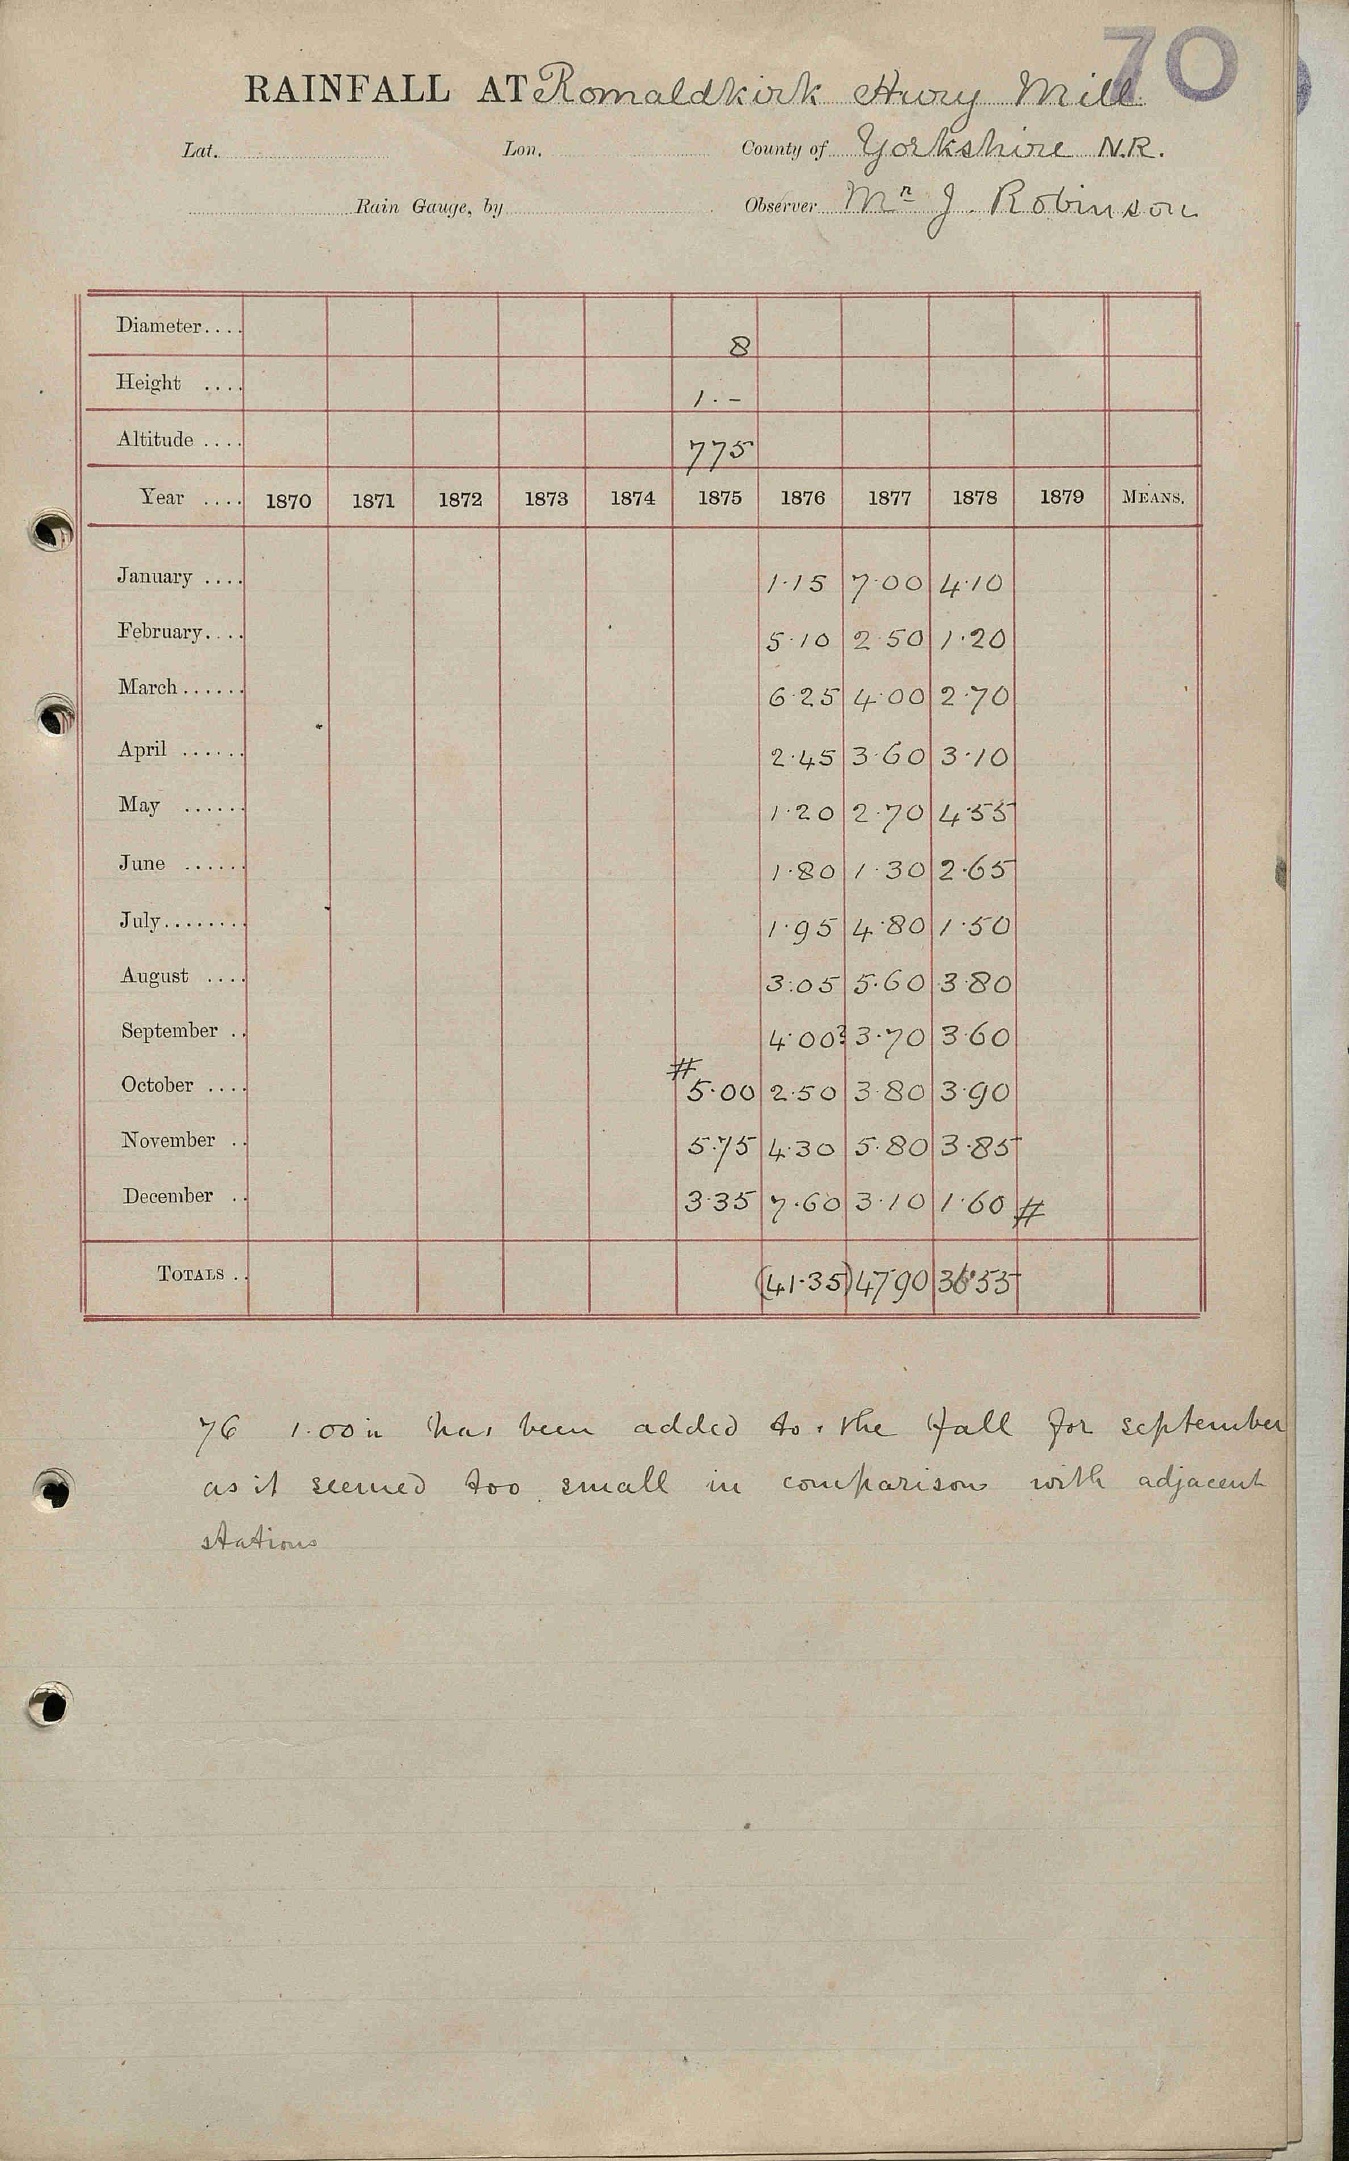 70
RAINFALL AT Romaldkirk Hury Mill
Lat. Lon. County of Yorkshire N.R.
Rain Gauge, by Observer Mr J. Robinson
Diameter.... 8
Height .... 1.-
Altitude .... 775
Year .... 1870 1871 1872 1873 1874 1875 1876 1877 1878 1879 MEANS.
January .... 1.15 7.00 4.10
February.... 5.10 2.50 1.20
March...... 6.25 4.00 2.70
April ...... 2.45 3.60 3.10
May ...... 1.20 2.70 4.55
June ...... 1.80 1.30 2.65
July........ 1.95 4.80 1.50
August .... 3.05 5.60 3.80
September .. 4.00? 3.70 3.60
October .... # 5.00 2.50 3.80 3.90
November .. 5.75 4.30 5.80 3.85
December .. 3.35 7.60 3.10 1.60 #
TOTALS .. (41.35) 47.90 36.55
76 1.00 in has been added to the fall for september
as it seemed too small in comparison with adjacent
stations